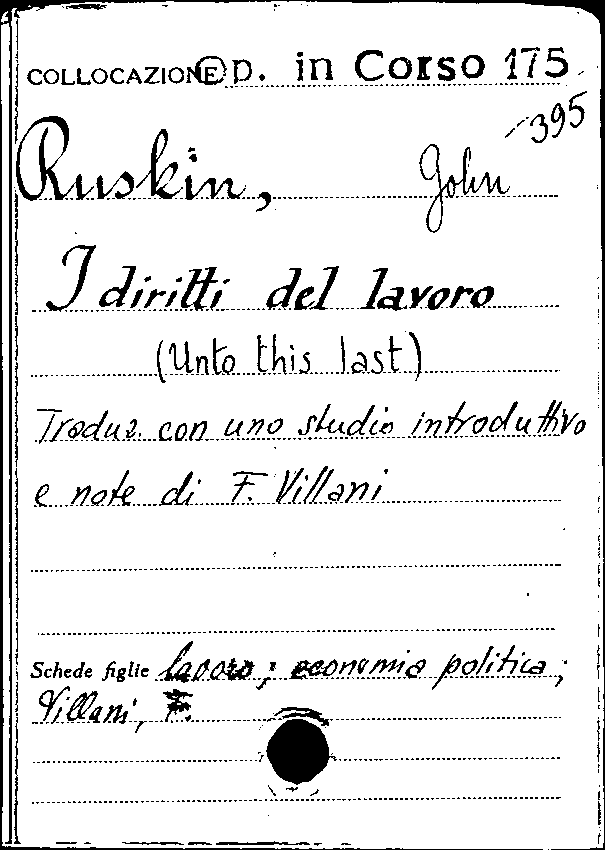 COLLOCAZIONE Op. in Corso 175
395
Ruskin, John
I diritti del lavoro
(Unto this last)
Traduz. con uno studio introduttivo
e note di F. Villani
Schede figlie lavoro; economia politica;
Villani, F.